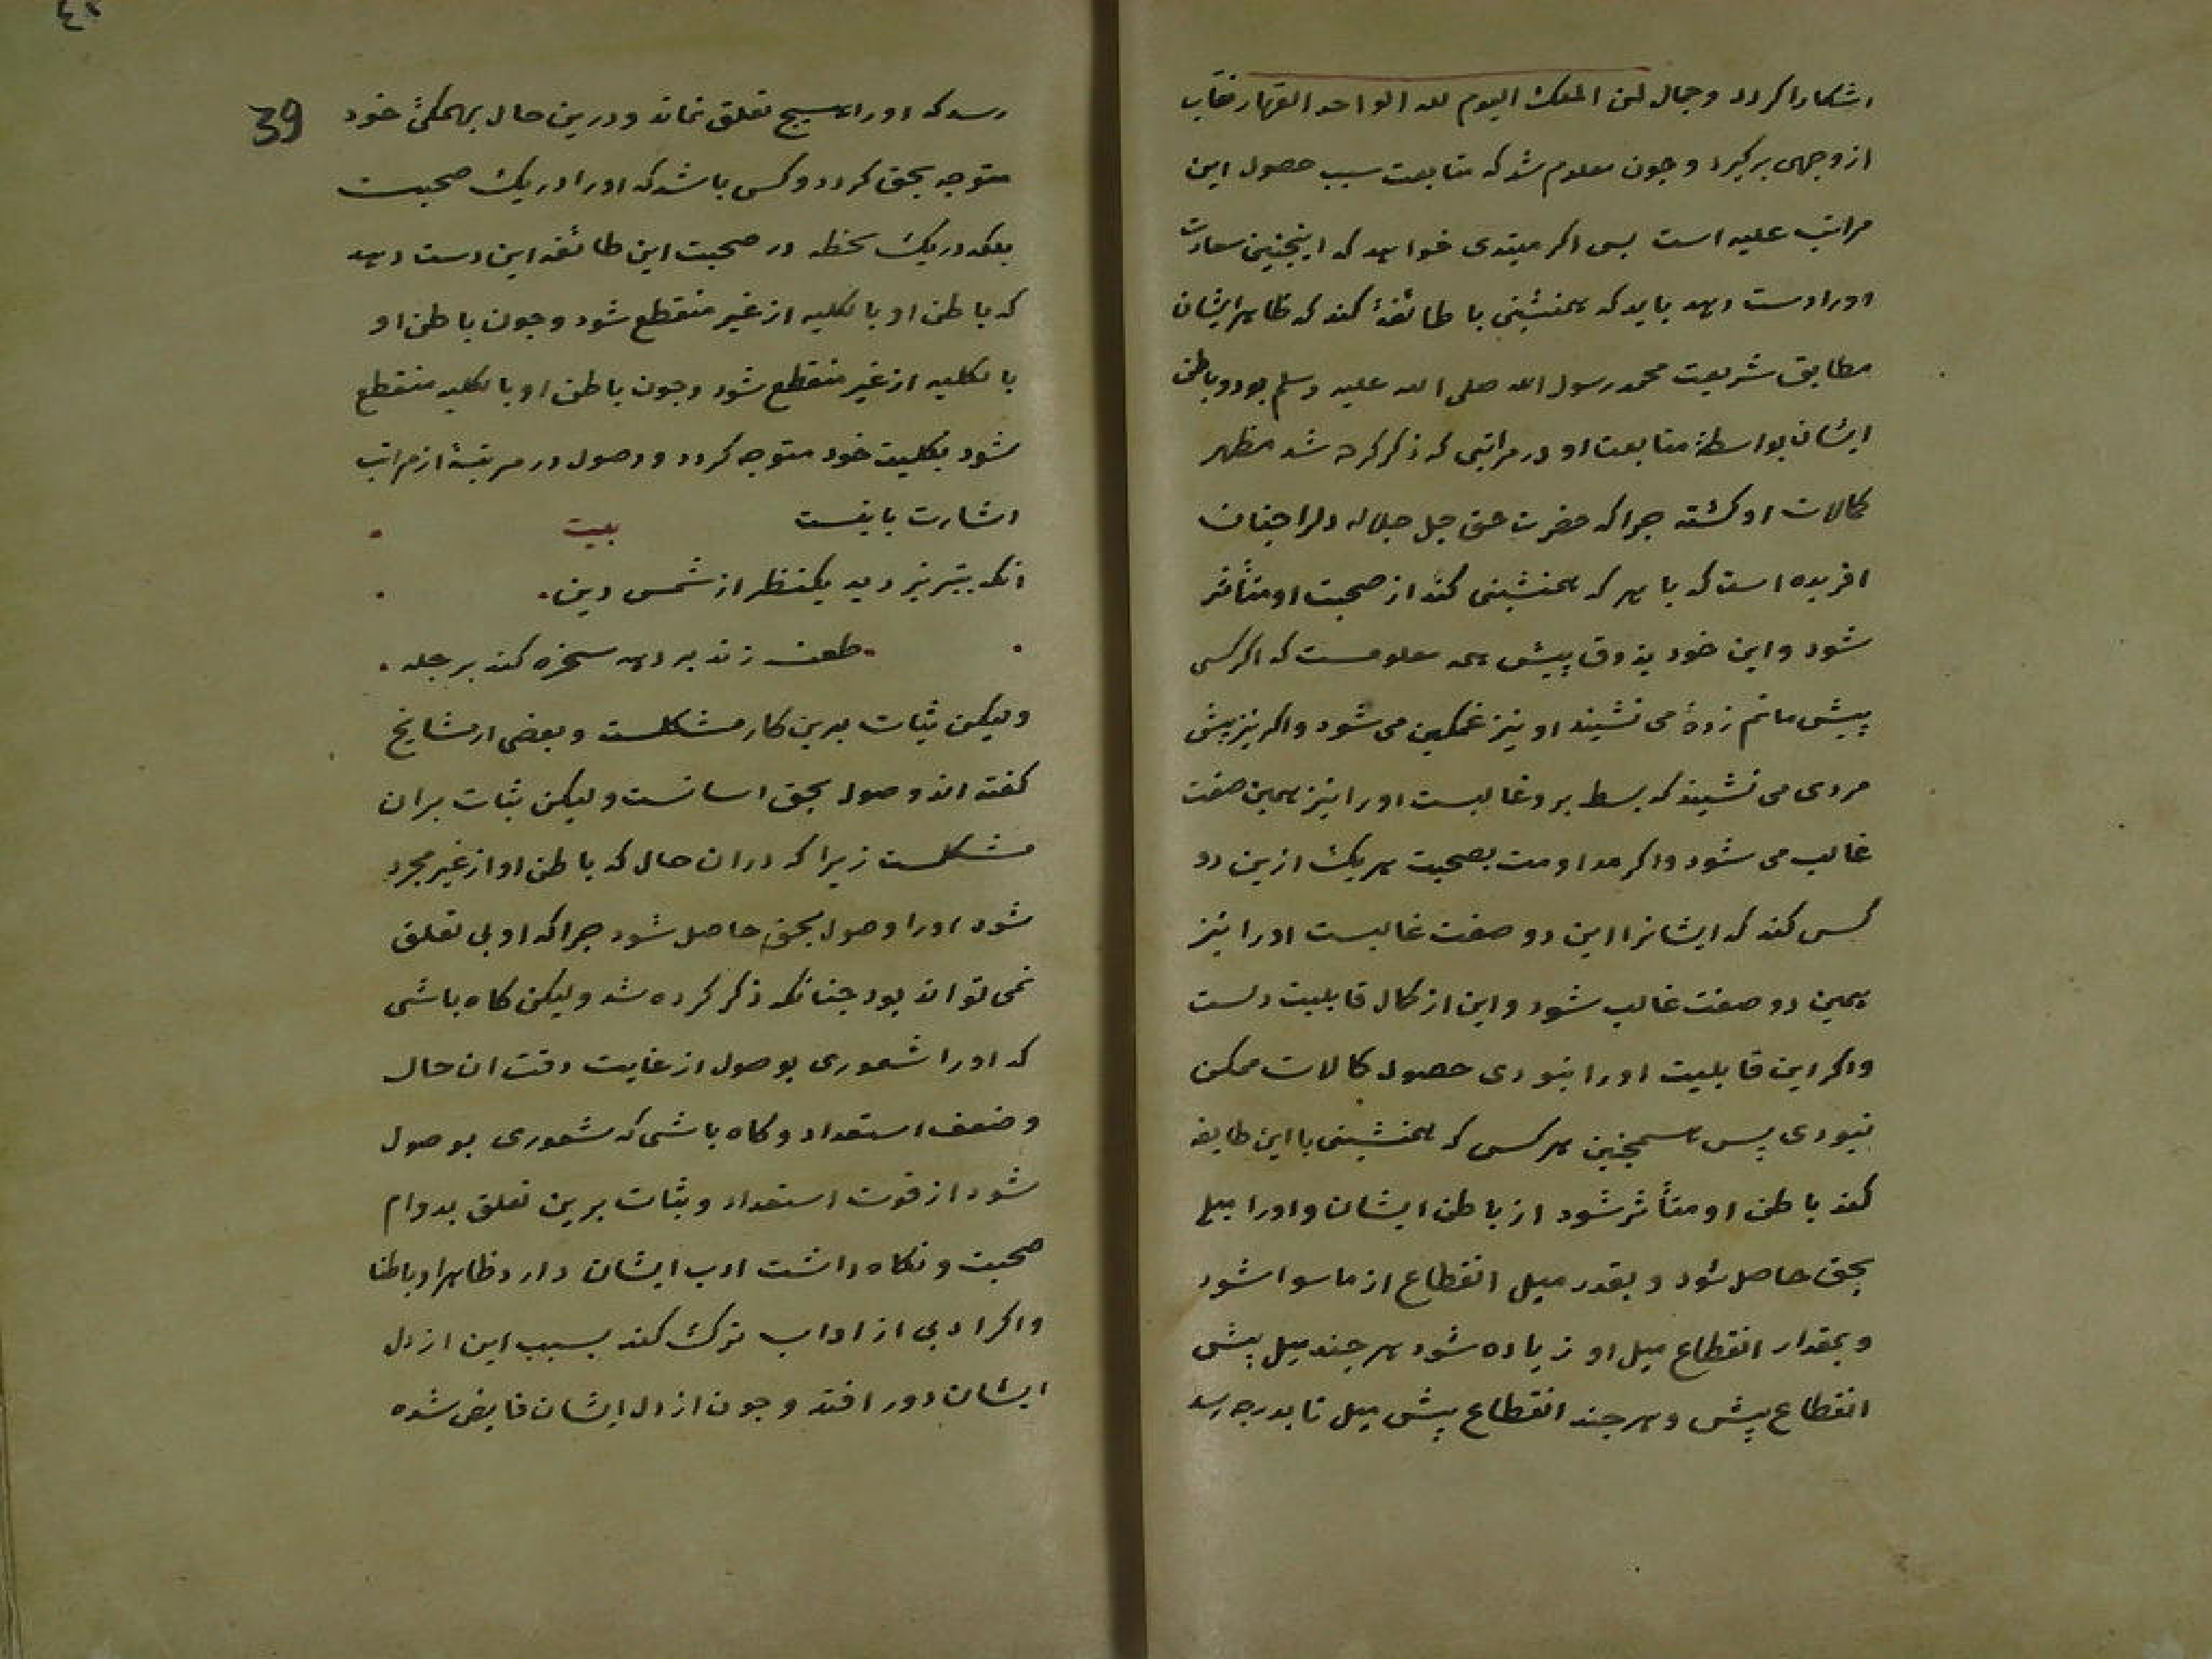 اشکارا کردد وجمال لمن الملک الیوم لله الواحد القهار نقاب
از وجهی برکیرد وجون معلوم شد که متابعت سبب حصول این
مراتب علیه است بس اکر مبتدی خواهد که اینجنین سعادت
اورا دست دهد باید که همنشینی با طائفۀ کند که ظاهر ایشان
مطابق شریعت محمد رسول الله صلی الله علیه وسلم بود وباطن
ایشان بواسطۀ متابعت او در مراتبی که ذکر کرده شد مظهر
کمالات او کشته جرا که حضرت حق جل جلاله دلرا جنان
افریده است که با هر که همنشینی کند از صحبت او متأثر
شود واین خود بذوق پیش همه معلومست که اکر کسی
پیش ماتم زدۀ می نشیند او نیز غمکین می شود واکر نیز پیش
مردی می نشیند که بسط برو غالبست اورا نیز همین صفت
غالب می شود واکر مداومت بصحبت هر یک ازین دو
کسی کند که ایشانرا این دو صفت غالبست اورا نیز
همین دو صفت غالب شود واین از کمال قابلیت دلست
واکر این قابلیت اورا نبودی حصول کمالات ممکن
نبودی پس همجنین هر کسی که همنشینی با این طایفه
کند باطن او متأثر شود از باطن ایشان واورا میلی
بحق حاصل شود وبقدر میل انقطاع از ماسوا شود
وبمقدار انقطاع میل او زیاده شود هر جند میل پیش
انقطاع پیش وهر جند انقطاع پیش میل تا بدرجه رسد
39
رسد که اورا هیچ تعلق نماند ودرین حال بهمکیٔ خود
متوجه بحق کردد وکس باشد که اورا در یک صحبت
بلکه در یک لحظه در صحبت این طائفه این دست دهد
که باطن او بالکلیه از غیر منقطع شود وجون باطن او
بالکلیه از غیر منقطع شود وجون باطن او بالکلیه منقطع
شود بکلیت خود متوجه کردد ووصول در مرتبۀ از مراتب
اشارت باینست بیت
انکه بتبریز دید یکنظر از شمس دین
طعنه زند بر دهه سخره کند بر جله
ولیکن ثبات بدین کار مشکلست وبعضی از مشایخ
کفته اند وصول بحق اسانست ولیکن ثبات بران
مشکلست زیرا که دران حال که باطن او از غیر مجرد
شود اورا وصول بحق حاصل شود جرا که او بی تعلق
نمی تواند بود جنانکه ذکر کرده شد ولیکن کاه باشی
که اورا شعوری بوصول از غایت دقت ان حال
وضعف استعداد وکاه باشی که شعوری بوصول
شود از قوت استعداد وثبات برین تعلق بدوام
صحبت ونکاه داشت ادب ایشان دارد ظاهرا وباطنا
واکر ادبی از اداب ترک کند بسبب این از دل
ایشان دور افتد وجون از دل ایشان فایض شده